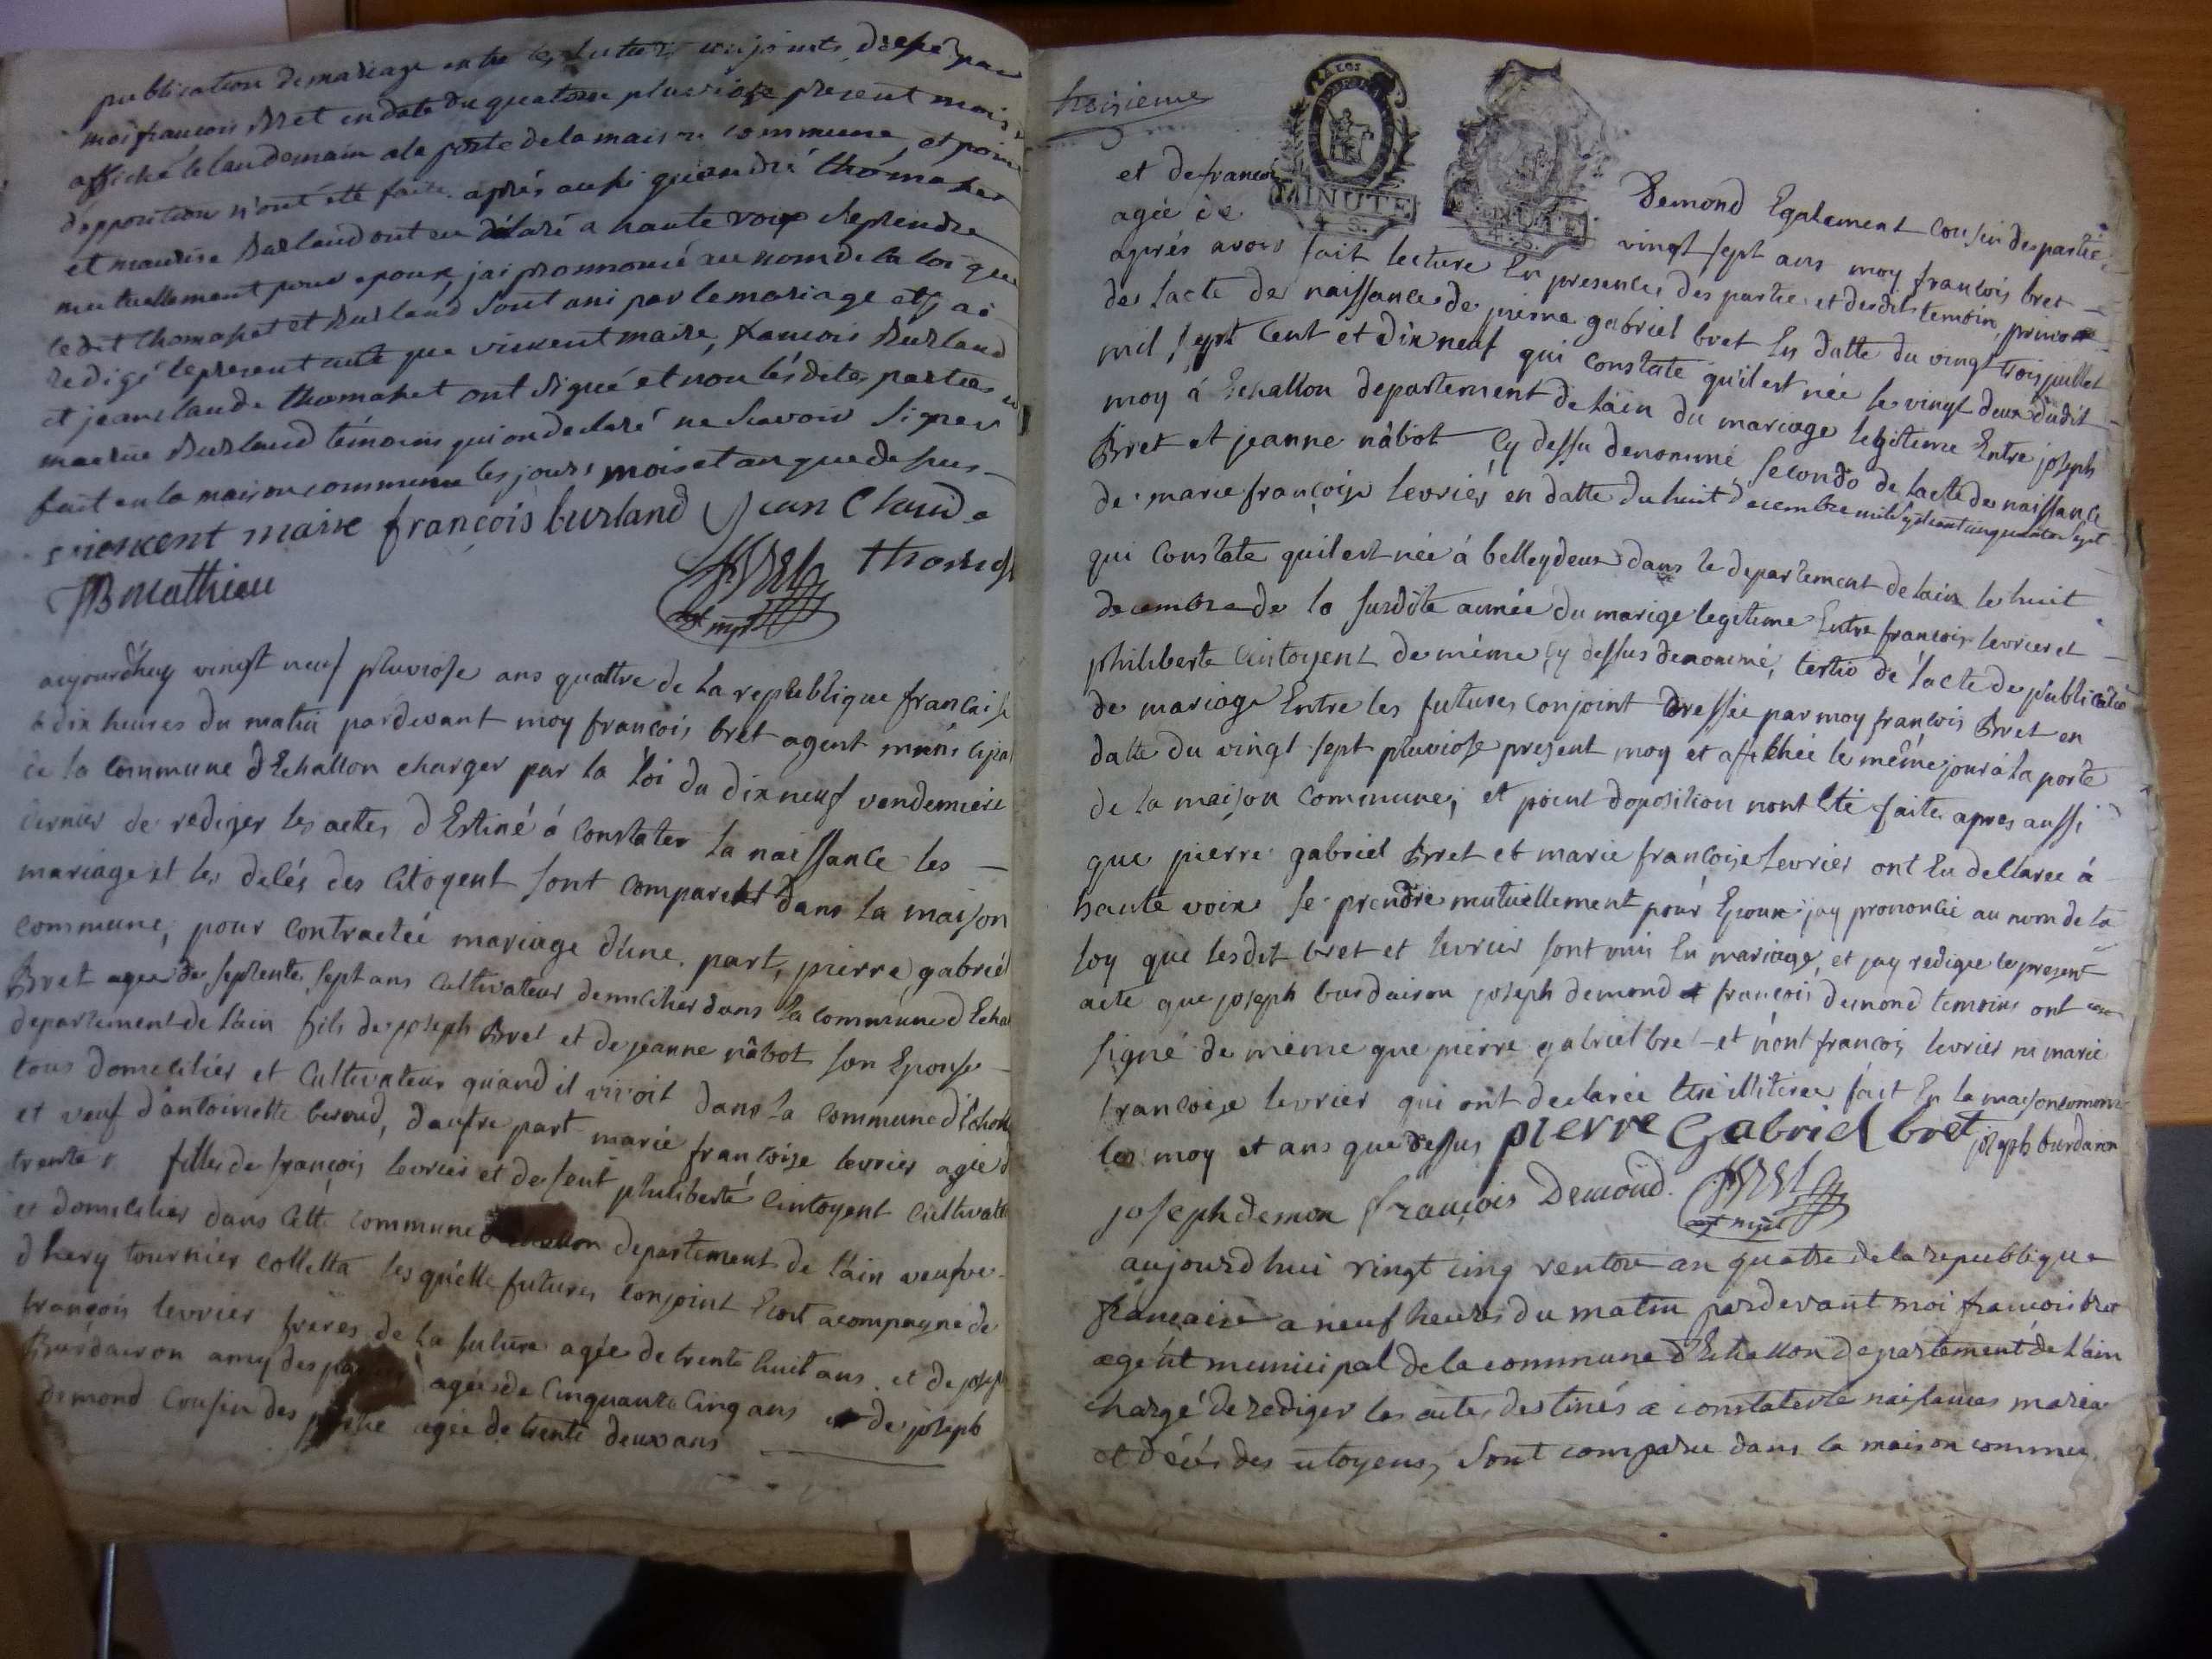 publication de mariage entre les futurs conjoints, dressé par
moi francois Bret en date du quatorze pluviose present mois
affiché le landemain a la porte de la maison commune, et point
d'opposition n'ont été faite. aprés aussi que andré thomasset
et maurise Burland ont eu déclaré a haute voix se prendre
mutuellement pour epoux, jai prononcé au nom de la loi que
ledit thomasset et Burland sont uni par le mariage et j'ai
redigé le present acte que vincent maire, francois Burland
et jean claude thomasset ont signé et non lesdites parties
maurise Burland témoins qui on declaré ne scavoir signer
fait en la maison commune les jours mois et an que dessus
vincent maire francois burland Jean Claude
JB mathieu BRET thomas
agt mpl
aujourdhuy vingt neuf pluviose ans quattre de la republique francaise
a dix heures du matin pardevant moy francois bret agent municipal
de la commune dEchallon charger par la loi du dix neuf vendemiere
dernier de rediger les actes dEstiné á constater la naissance les
mariage et les delés des citoyent sont comparut dans la maison
commune, pour contractéé mariage d'une part, pierre gabriél
Bret agee de septente sept ans cultivateur demicilier dans la commune d Echal
departement de lain fils de joseph Bret et de jeanne nâbot son Epouse
tous domicilier et cultivateur quand il vivoit dans la commune d'Echall
et veuf d'antoinette beroud, d'autre part marie francoise levrier agée d
trente filles de françois levrier et de feut philiberté cintoyent cultivat
et domicilier dans cette commune dEchallon departement de lain veufve
d hery tournier colletta lesquélle futures conjoint Etoit acompagné de
françois levrier fréres de la future agée de trente huit ans et de joseph
Burdairon amy des parties ageé de cinquante cinq ans et de joseph
demond cousin des partie agée de trente deux ans
troisieme
MINUTE
4. S.
MINUTE
4. S.
et de francois Demond Egalement cousin des partie
agée de vingt sept ans moy francois bret
aprés avoir fait lecture En presence des partie et desdits temoin, primo
de lacte de naissance de pierre gabriel bret En datte du vingt trois juillet
mil sept cent et dix neuf qui constate qu'il est née le vingt deux dudit
moy á Echallon departement de láin du mariage legiteme Entre joseph
Bret et jeanne nâbot cy dessu denommé, secondo de lacte de naissance
de marie françoise levriér en datte du huit decembre mil sept cent cinquante sept
qui constate quil est née á belleydoux dans le departement de lain le huit
decembre de la susdite année du marige legiteme Entre francois levrier et
philiberte cintoyent de méme cy dessus denommé, tertio de lacte de publication
de mariage Entre les futures conjoint dressée par moy francois Bret en
datte du vingt sept pluviose present moy et affichée le même jour á la porte
de la maison commune, et point doposition nont Eté faite apres aussi
que pierre gabriel Bret et marie françoise levrier ont Eu dellarée á
haute voix se prendre mutuellement pour Epoux jay prononcée au nom de la
loy que lesdit bret et levrier sont unis En mariage, et jay redigee le present
acte que joseph burdairon joseph demond et françois demond temoins ont
signé de meme que pierre gabriel bret et nont francois levrier ni marie
francoise levrier qui ont declarée Etre illiteree fait En la maison comune
les moy et ans que dessus pierre Gabriel bret joseph burdairon
joseph demon François Demond. BRET
agt mpl
aujourdhui vingt cinq ventose an quatre de la republique
française a neuf heures du matin pardevant moi francois bret
agént municipal de la commune d'Echallon departement de l'ain
chargé de rediger les actes destinés a constater le naissances maria
et décés des citoyens, sont comparu dans la maison commu